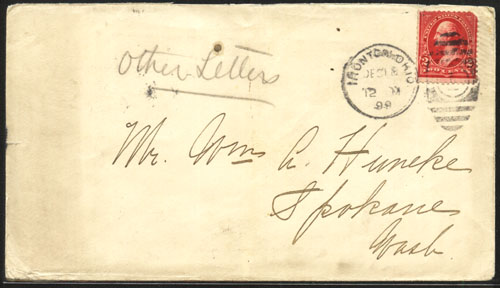 Other Letters
IRONTON, OHIO
DEC
12 M
Mr. Wm A. Huneke
Spokane
Wash.